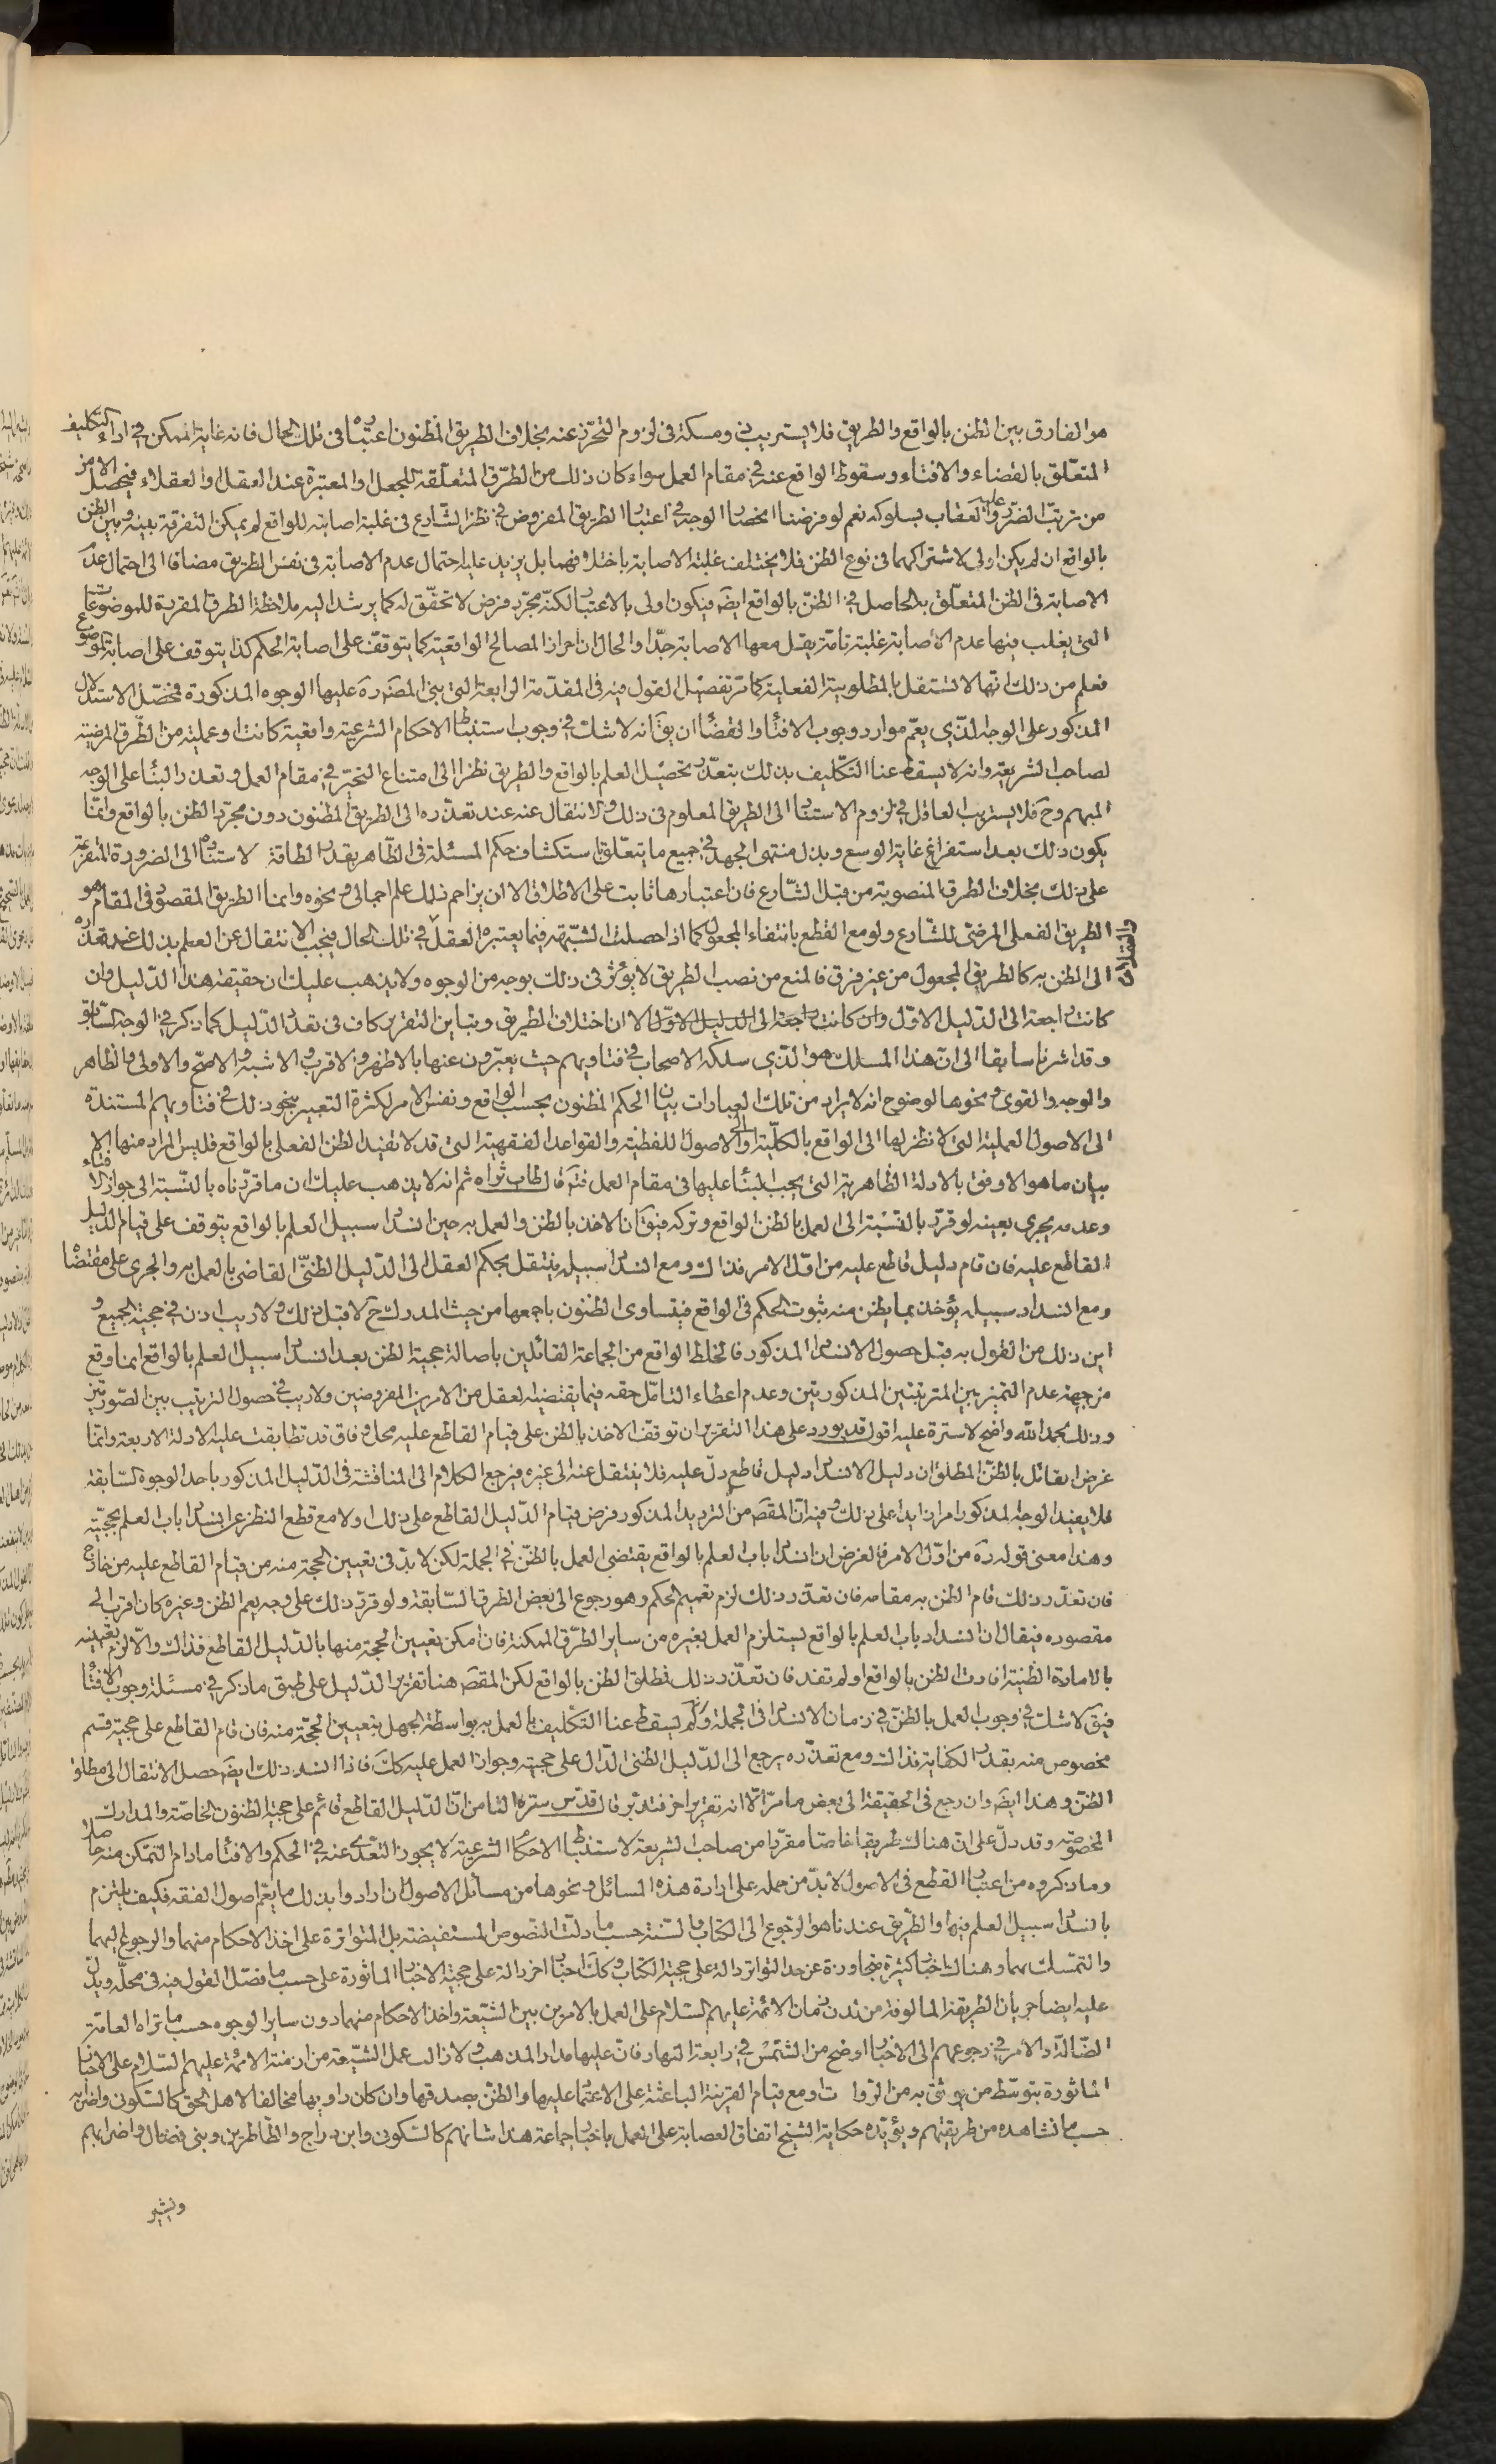 هو الفارق بين الظن بالواقع والطريق فلا يستريب ذو مسكة فى لزوم التحرّز عنه بخلاف الطريق المظنون اعتباره فى تلك الحال فانه غاية الممكن فى اداء التكليف
المتعلّق بالقضاء والافتاء وسقوط الواقع عنه فى مقام العمل سواء كان ذلك من الطرق المتعلّقة للجعل او المعتبرة عند العقل والعقلاء فيحصل الامن
من ترتب الضرر والعقاب عليه بسلوكه نعم لو فرضنا انحصار الوجه فى اعتبار الطريق المفروض فى نظر الشارع فى غلبة اصابته للواقع لم يمكن التفرقة بينه وبين الظن
بالواقع ان لم يكن اولى لاشتراكهما فى نوع الظن فلا يختلف غلبة الاصابة باختلافهما بل يزيد عليه احتمال عدم الاصابة فى نفس الطريق مضافا الى احتمال عدم
الاصابة فى الظن المتعلّق به الحاصل فى الظنّ بالواقع ايضً فيكون اولى بالاعتبار لكنّه مجرّد فرض لا تحقّق له كما يرشد اليه ملاحظة الطرق المقررة للموضوعات
التى يغلب فيها عدم الاصابة غلبة تامّة يقلّ معها الاصابة جدّا والحال ان احراز المصالح الواقعية كما يتوقّف على اصابة الحكم كذا يتوقف على اصابة الموضوع
فعلم من ذلك انها لا تستقل بالمطلوبية الفعلية كما مرّ تفصيل القول فيه فى المقدّمة الرابعة التى بنى المصَ ره عليها الوجوه المذكورة فمحصّل الاستدلال
المذكور على الوجه الذى يعمّ موارد وجوب الافتاء والقضاء ان يقَ انه لا شك فى وجوب استنباط الاحكام الشرعية واقعية كانت او عملية من الطرق المرضية
لصاحب الشريعة وانه لا يسقط عنا التكليف بذلك بتعذّر تحصيل العلم بالواقع والطريق نظرا الى امتناع التخيّر فى مقام العمل وتعذر البناء على الوجه
المبهم وحَ فلا يستريب العاقل فى لزوم الاستناد الى الطريق المعلوم فى ذلك والانتقال عنه عند تعذّره الى الطريق المظنون دون مجرّد الظن بالواقع وانما
يكون ذلك بعد استفراغ غاية الوسع وبذل منتهى الجهد فى جميع ما يتعلّق باستكشاف حكم المسئلة فى الظاهر بقدر الطاقة لاستناده الى الضرورة المتفرعة
على ذلك بخلاف الطرق المنصوبة من قبل الشارع فان اعتبارها ثابت على الاطلاق الا ان يزاحم ذلك علم اجمالى ونحوه وانما الطريق المقصود فى المقام هو
الطريق الفعلى المرضى للشارع ولو مع القطع بانتفاء المجعول كما اذا حصلت الشبهة فيما يعتبره العقل والعقلاء فى تلك الحال فيجب الانتقال عن العلم بذلك عند تعذره
الى الظن به كالطريق المجعول من غير فرق فالمنع من نصب الطريق لا يؤثر فى ذلك بوجه من الوجوه ولا يذهب عليك ان حقيقة هذا الدليل وان
كانت راجعة الى الدليل الاول وان كانت راجعة الى الدليل الاول الا ان اختلاف الطريق وتباين التقرير كاف فى تعدد الدليل كما ذكر فى الوجه السابق
وقد اشرنا سابقا الى انّ هذا المسلك هو الذى سلكه الاصحاب فى فتاويهم حيث يعبّرون عنها بالاظهر والاقرب والاشبه والاصحّ والاولى والظاهر
والوجه والقوى ونحوها لوضوح انه لا يراد من تلك العبارات بيان الحكم المظنون بحسب الواقع ونفس الامر لكثرة التعبير بنحو ذلك فى فتاويهم المستندة
الى الاصول العملية التى لا نظر لها الى الواقع بالكلّية والى الاصول اللفظية والقواعد الفقهية التى قد لا تفيد الظن الفعلى بالواقع فليس المراد منها الا
بيان ما هو الاوفق بالادلة الظاهرية التى يجب البناء عليها فى مقام العمل فتمّ قال طاب ثراه ثم انه لا يذهب عليك ان ما قررناه بالنسبة الى جواز الافتاء
وعدمه يجرى بعينه لو قرّر بالنسبة الى العمل بالظن الواقع وتركه فيقَ ان الاخذ بالظن والعمل به حين انسداد سبيل العلم بالواقع يتوقف على قيام الدليل
القاطع عليه فان قام دليل قاطع عليه من اوّل الامر فذاك ومع انسداد سبيله ينتقل بحكم العقل الى الدليل الظنّى القاضى بالعمل به والجرى على مقتضاه
ومع انسداد سبيله يؤخذ بما يظن منه بثبوت الحكم فى الواقع فيتساوى الظنون باجمعها من حيث المدرك حَ لا قبل ذلك ولا ريب اذن فى حجية الجميع و
اين ذلك من القول به قبل حصول الانسداد المذكور فالخلط الواقع من الجماعة القائلين باصالة حجية الظن بعد انسداد سبيل العلم بالواقع انما وقع
من جهة عدم التميز بين المرتبتين المذكورتين وعدم اعطاء التامّل حقه فيما يقتضيه العقل من الامرين المفروضين ولا ريب فى حصول الترتيب بين الصورتين
وذلك بحمد الله واضح لا سترة عليه اقول قد يورد على هذا التقرير ان توقف الاخذ بالظن على قيام القاطع عليه محل وفاق قد تطابقت عليه الادلة الاربعة وانما
غرض القائل بالظنّ المطلق ان دليل الانسداد دليل قاطع دلّ عليه فلا ينتقل عنه الى غيره فيرجع الكلام الى المناقشة فى الدليل المذكور باحد الوجوه السابقة
فلا يفيد الوجه المذكور امرا زايدا على ذلك وفيه انّ المقصَ من الترديد المذكور فرض قيام الدليل القاطع على ذلك اولا مع قطع النظر عن انسداد باب العلم بحجّيته
وهذا معنى قوله ره من اوّل الامر فالغرض ان انسداد باب العلم بالواقع يقتضى العمل بالظنّ فى الجملة لكن لا بدّ فى تعيين الحجة منه من قيام القاطع عليه من خارج
فان تعذّر ذلك قام الظن به مقامه فان تعذّر ذلك لزم تعميم الحكم وهو رجوع الى بعض الطرق السابقة ولو قرّر ذلك على وجه يعم الظن وغيره كان اقرب الى
مقصوده فيقال ان انسداد باب العلم بالواقع يستلزم العمل بغيره من ساير الطرق الممكنة فان امكن تعيين الحجة منها بالدليل القاطع فذاك والّا لزم تعيينه
بالامارة الظنية افادت الظن بالواقع او لم تفد فان تعذّر ذلك فمطلق الظن بالواقع لكن المقصَ هنا تقرير الدليل على طبق ما ذكر فى مسئلة وجوب الافتاء
فيقَ لا شك فى وجوب العمل بالظنّ فى زمان الانسداد فى الجملة وانه لم يسقط عنا التكليف بالعمل به بواسطة الجهل بتعيين الحجّة منه فان قام القاطع على حجية قسم
مخصوص منه بقدر الكفاية فذاك ومع تعذّره يرجع الى الدليل الظنى الدال على حجيته وجواز العمل عليه كَكَ فاذا انسد ذلك ايضَ حصل الانتقال الى مطلق
الظن وهذا ايضَ وان رجع فى الحقيقة الى بعض ما مرّ الّا انه تقرير اخر فتدبّر قال قدّس سرّه الثامن انّ الدليل القاطع قائم على حجية الظنون الخاصّة والمدارك
المخصوصة وقد دلّ على انّ هناك طريقا خاصّا مقرّرا من صاحب الشريعة لاستنباط الاحكام الشرعية لا يجوز التعدّى عنه فى الحكم والافتاء ما دام التمكن منه حاصلا
وما ذكروه من اعتبار القطع فى الاصول لا بدّ من حمله على ارادة هذه المسائل ونحوها من مسائل الاصول ان ارادوا بذلك ما يعمّ اصول الفقه فكيف يلتزم
بانسداد سبيل العلم فيها والطّريق عندنا هو الرجوع الى الكتاب والسّنة حسب ما دلّت النصوص المستفيضة بل المتواترة على اخذ الاحكام منهما والرجوع اليهما
والتمسّك بهما وهناك اخبار كثيرة متجاوزة عن حد التواتر دالة على حجية الكتاب وكَكَ اخبار اخر دالة على حجية الاخبار الماثورة على حسب ما فصّل القول فيه فى محلّه ويدل
عليه ايضا جريان الطريقة المالوفة من لدن زمان الائمة عليهم السلام على العمل بالامرين بين الشيعة واخذ الاحكام منهما دون ساير الوجوه حسب ما تراه العامّة
الضّالة والامر فى رجوعهم الى الاخبار اوضح من الشمس فى رابعة النهار فانّ عليها مدار المذهب ولا زالت عمل الشيعة من ازمنة الائمة عليهم السلام على الاخبار
الماثورة بتوسّط من يوثق به من الرواة ومع قيام القرينة الباعثة على الاعتماد عليها والظنّ بصدقها وان كان راويها مخالفا لاهل الحق كالسكونى واضرابه
حسب ما نشاهده من طريقتهم ويؤيّده حكاية الشيخ اتفاق العصابة على العمل باخبار جماعة هذا شانهم كالسكونى وابن دراج والطاطريين وبنى فضال واضرابهم
ويشير